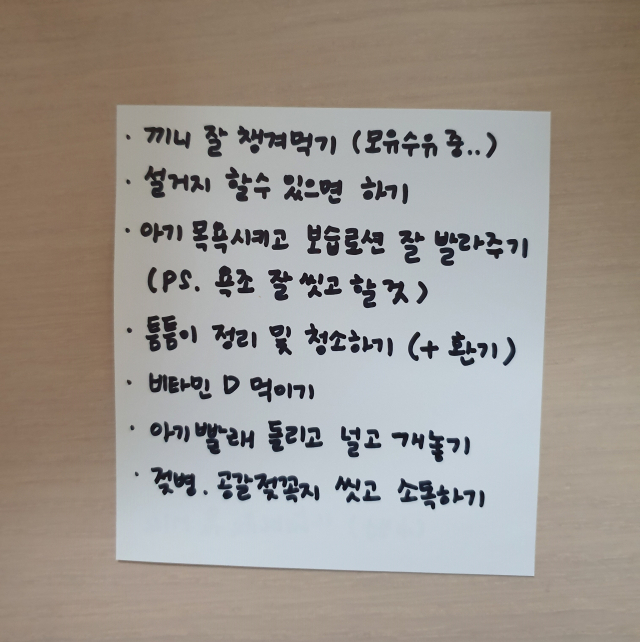 · 끼니 잘 챙겨먹기 (모유수유 중..)
· 설거지 할수 있으면 하기
· 아기 목욕시키고 보습로션 잘 발라주기
(PS. 욕조 잘 씻고 할 것)
· 틈틈이 정리 및 청소하기 (+ 환기)
· 비타민 D 먹이기
· 아기빨래 돌리고 널고 개놓기
· 젖병. 공갈젖꼭지 씻고 소독하기